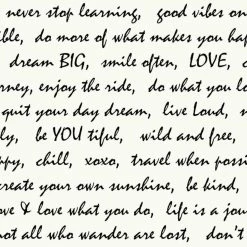 never stop learning, good vibes on
ible, do more of what makes you hap
dream BIG, smile often, LOVE,
rney, enjoy the ride, do what you lo
quit your day dream, live Loud, n
ly, be YOU tiful, wild and free,
ppy, chill, xoxo, travel when possi
create your own sunshine, be kind,
ove & love what you do, life is a jou
not all who wander are lost, don't